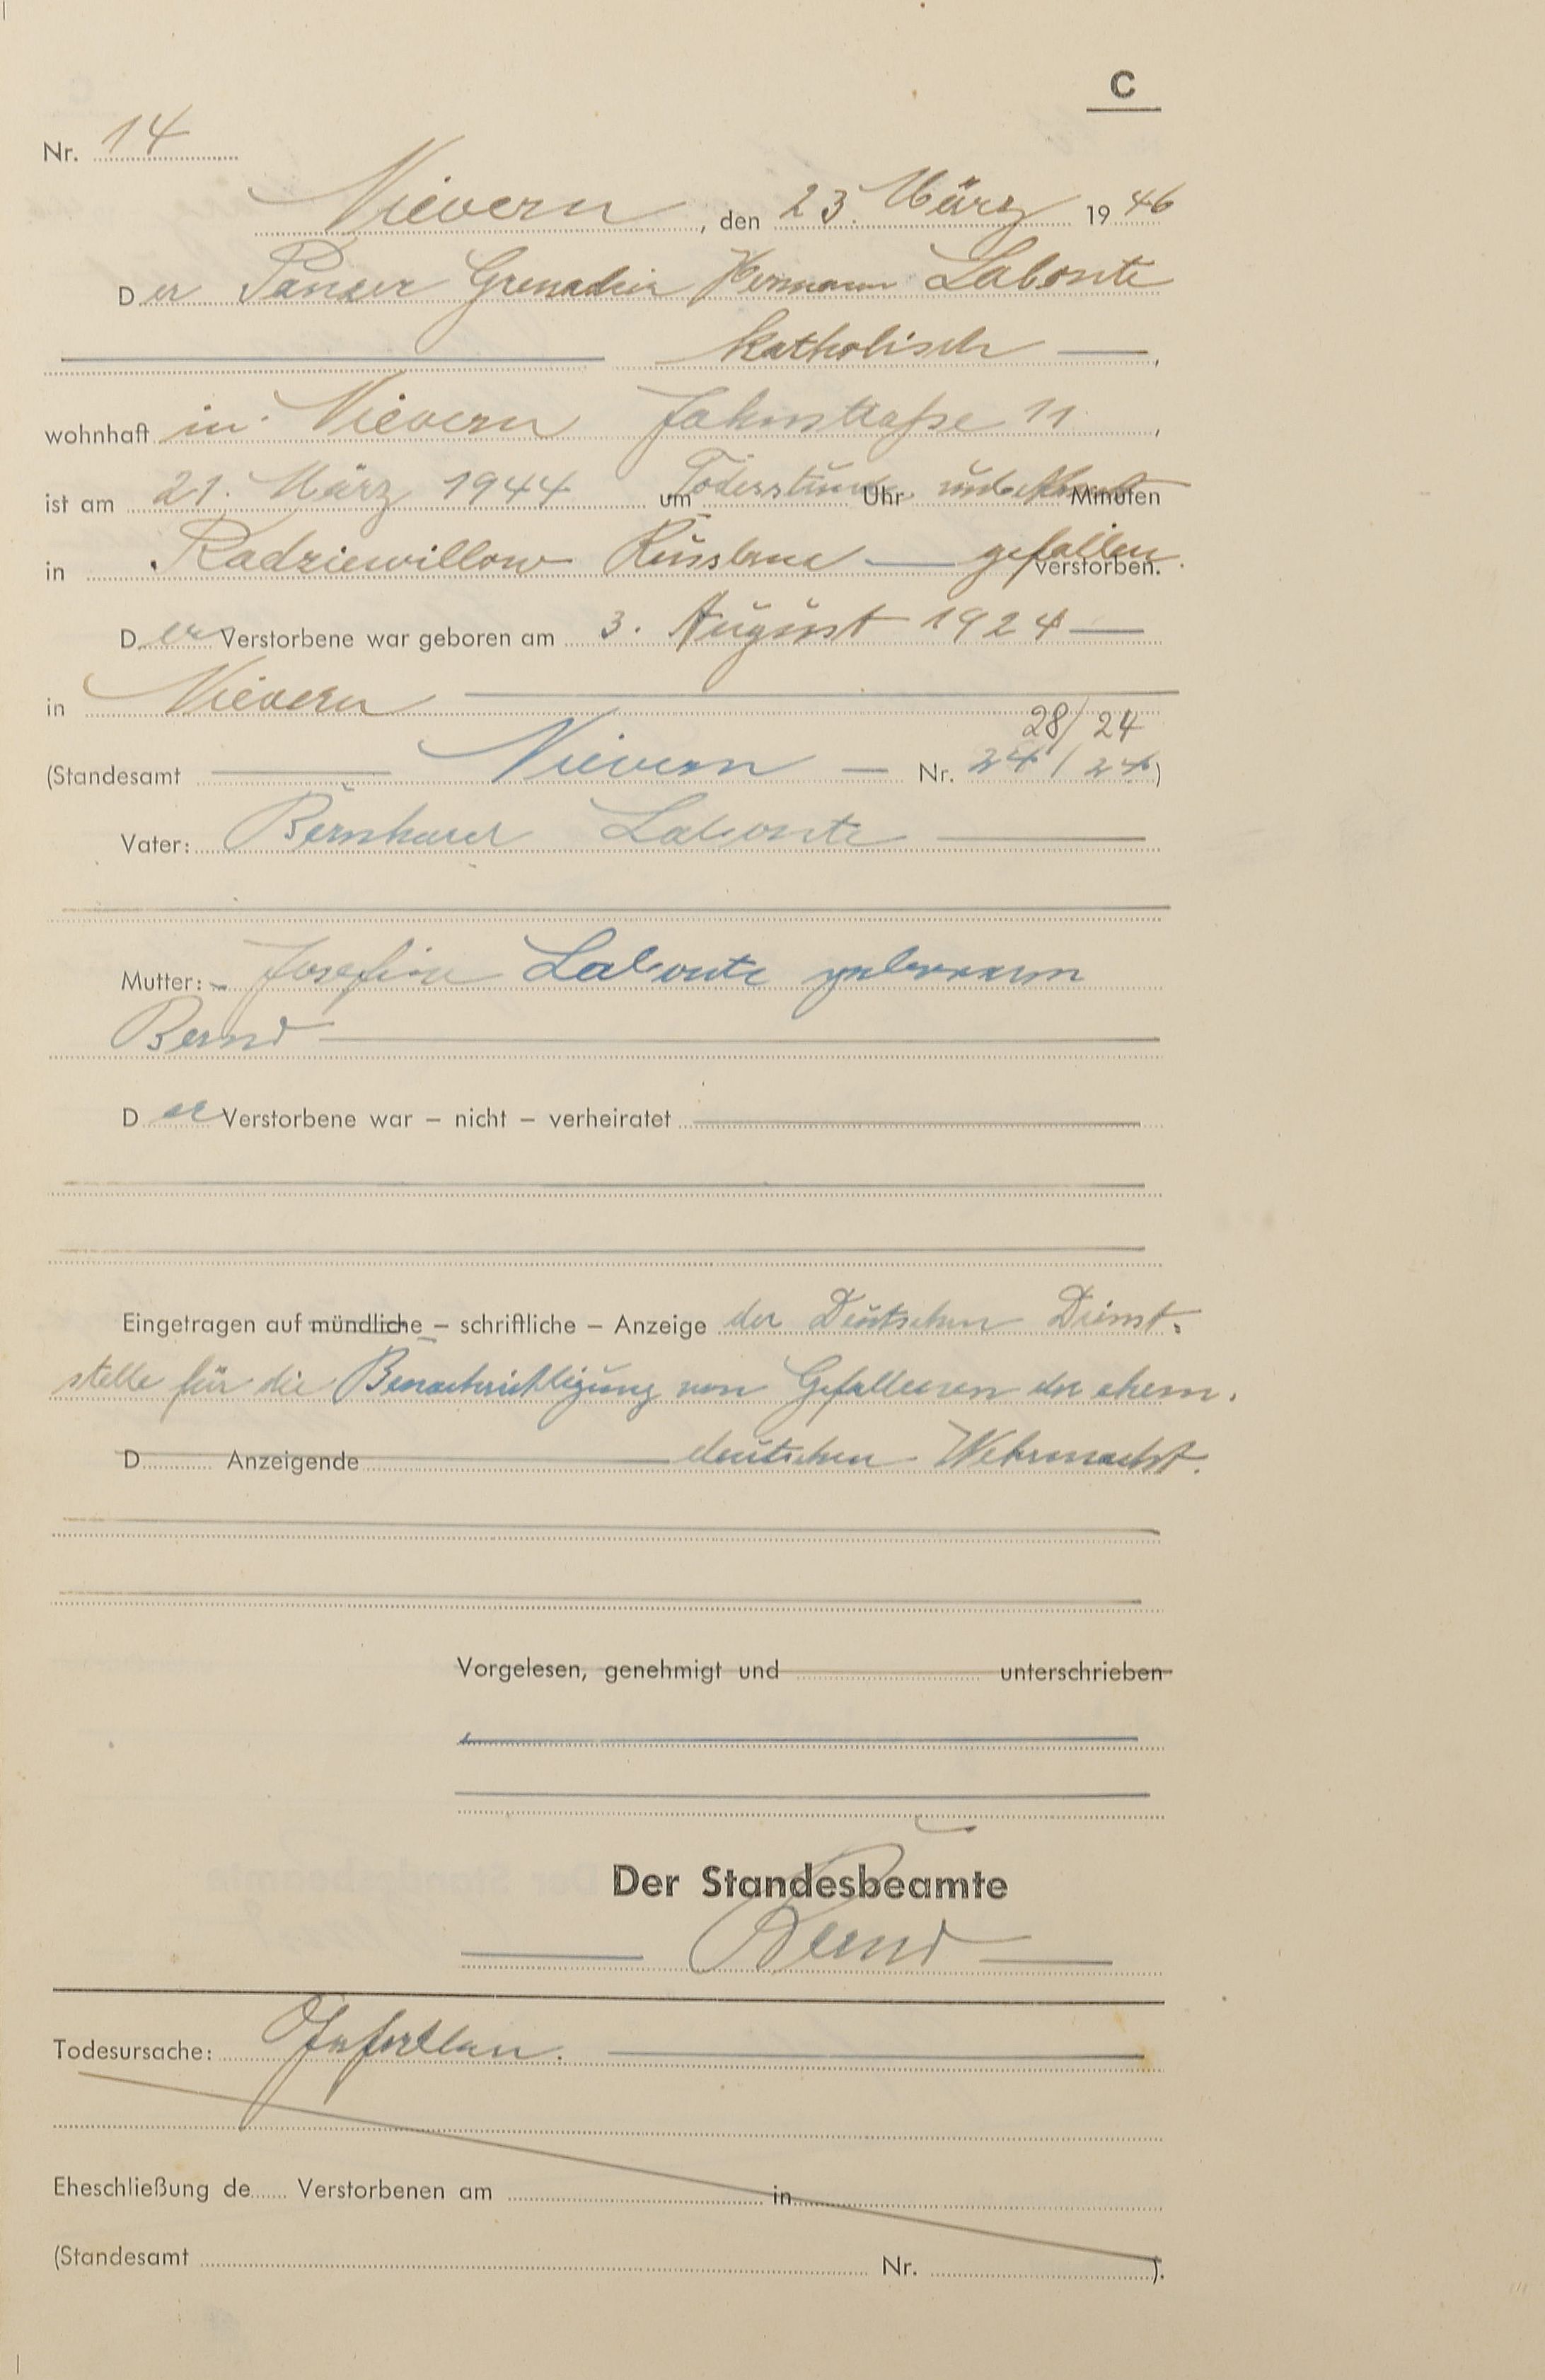 C
Nr. 14
Nievern, den 23. März 1946
Der Panzer Grenadier Hermann Labonte
katholisch,
wohnhaft in Nievern Jahnstraße 11,
ist am 21. März 1944 um Todesstunde Uhr unbekannt Minuten
in Radziewillow Russland gefallen verstorben.
Der Verstorbene war geboren am 3. August 1924
in Nievern
28/24
(Standesamt Nievern Nr. 24/24)
Vater: Bernhard Labonte
Mutter: Josefine Labonte geborenen
Bernd
Der Verstorbene war – nicht – verheiratet
Eingetragen auf mündliche – schriftliche – Anzeige der Deutschen Dienst-
stelle für die Benachrichtigung von Gefallenen der ehem.
D Anzeigende deutschen Wehrmacht.
Vorgelesen, genehmigt und unterschrieben
Der Standesbeamte
Bernd
Todesursache:
Eheschließung de Verstorbenen am in
(Standesamt Nr. ).